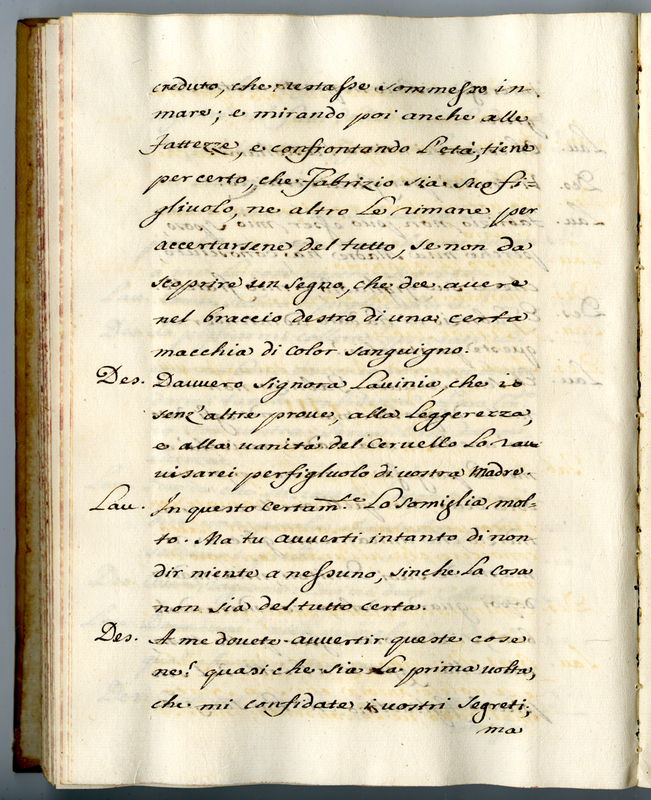 creduto, che restasse sommesso in
mare; e mirando poi anche alle
fattezze, e confrontando l'età, tiene
per certo, che Fabrizio sia suo fi
gliuolo, ne altro le rimane per
accertarsene del tutto, se non da
scoprire un segno, che dee avere
nel braccio destro di una certa
macchia di color sanguigno.
Des. Davvero signora Lavinia, che io
senz'altre prove, alla leggerezza,
e alla vanità del cervello lo rav
visarei per figluolo di vostra Madre.
Lau. In questo certam.te lo somiglia mol-
to. Ma tu avverti intanto di non
dir niente a nessuno, sinche la cosa
non sia del tutto certa.
Des. A me dovete avvertir queste cose
ne! quasi che sia la prima volta,
che mi confidate i vostri segreti;
ma